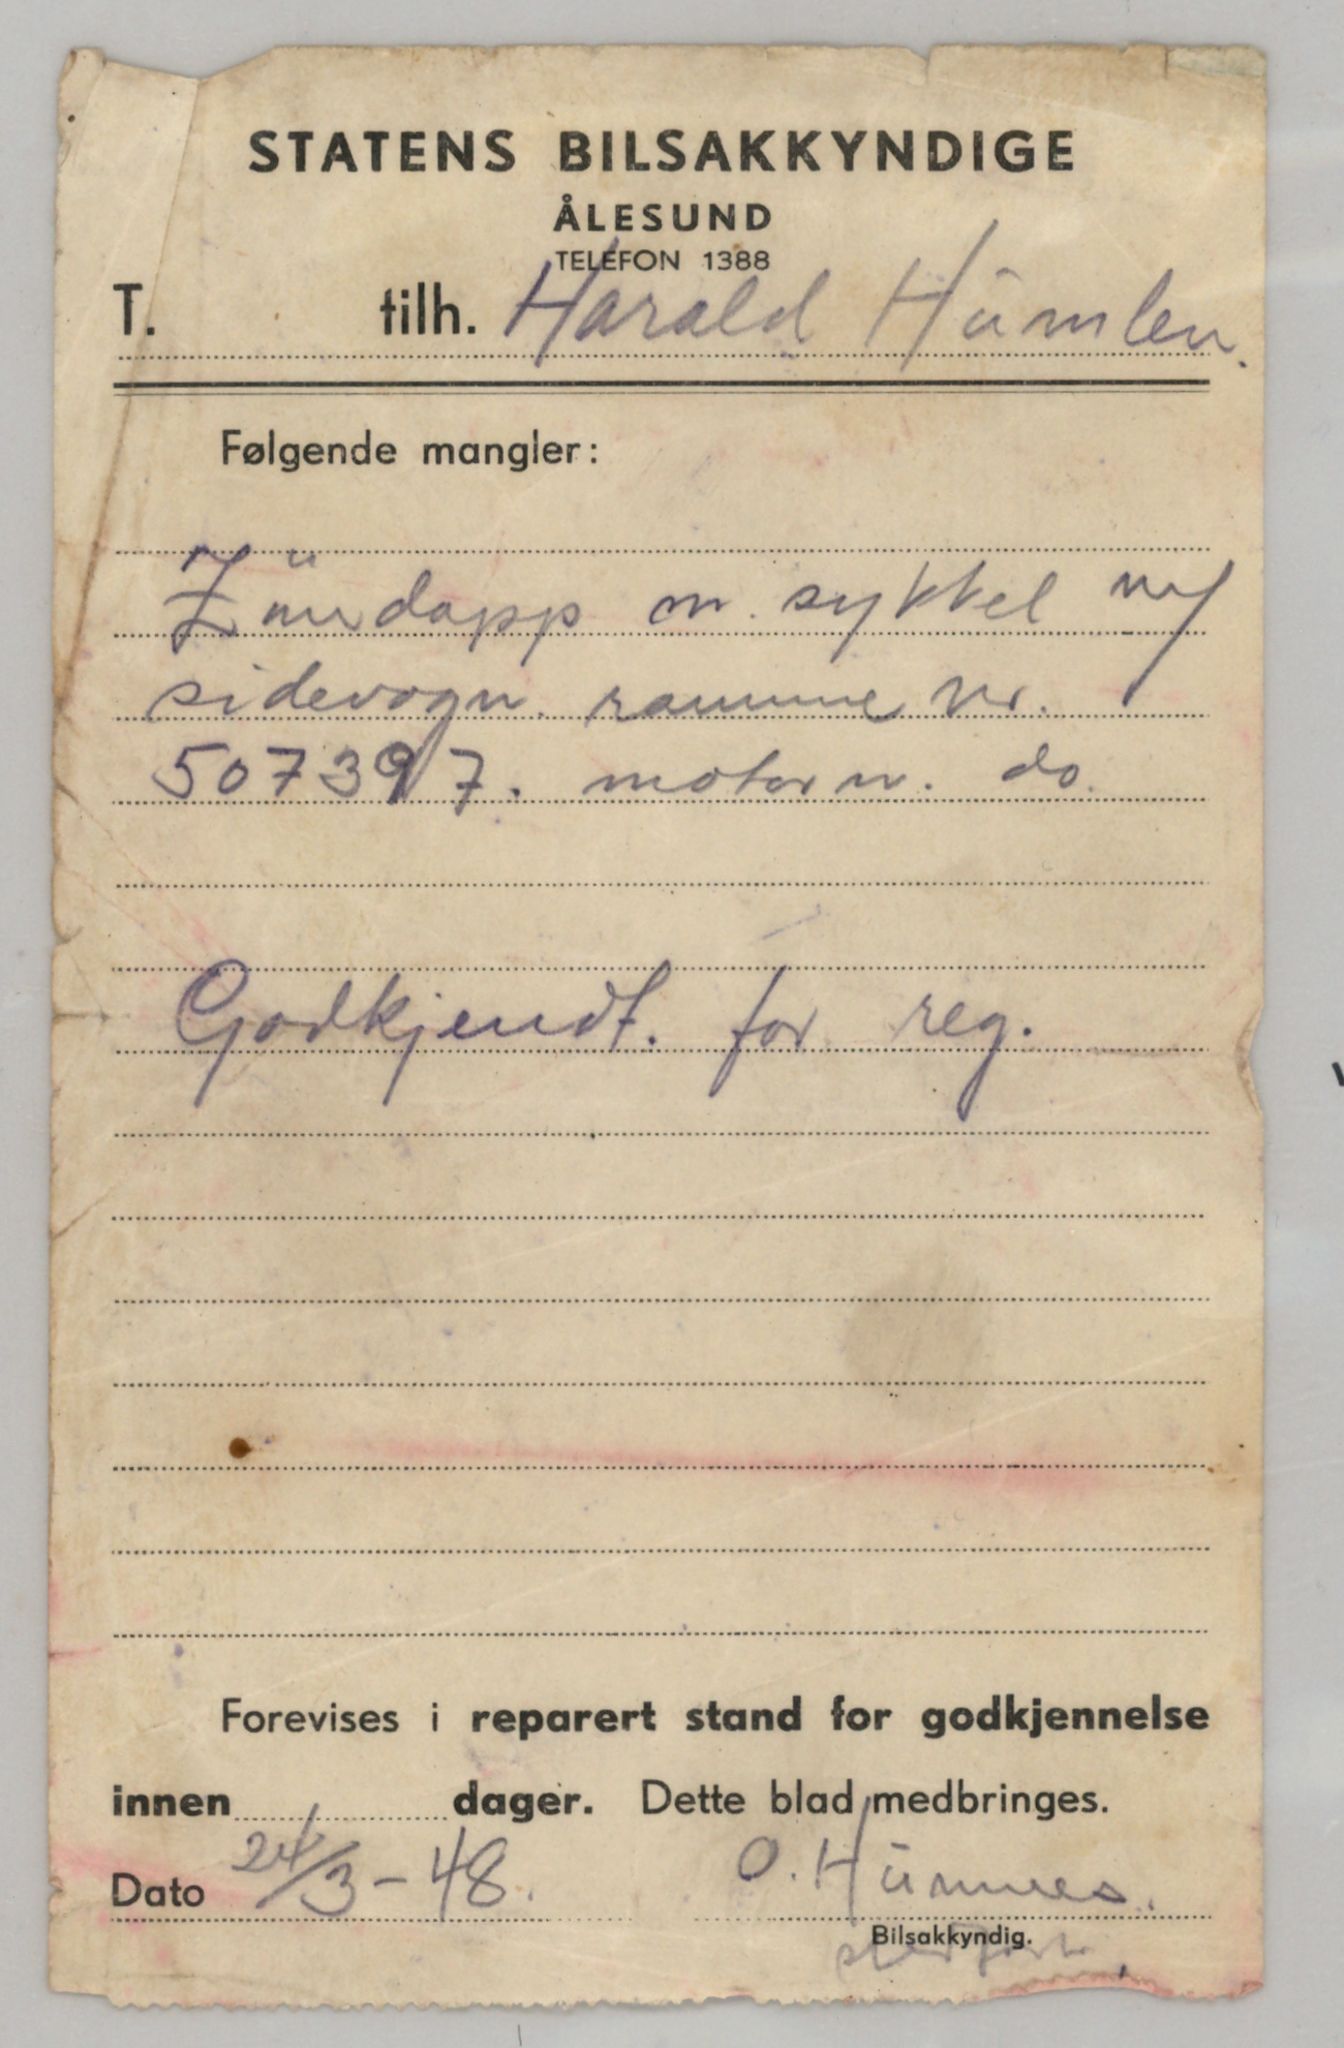 STATENS BILSAKKYNDIGE
ÅLESUND
TELEFON 1388
T. tilh. Harald Humlen.
Følgende mangler:
Zündapp m. sykkel m/
sidevogn. ramme Nr.
507397. motor n. do.
Godkjendt. for reg.
Forevises i reparert stand for godkjennelse
innen dager. Dette blad medbringes.
Dato 24/3-48. O. Humnes.
Bilsakkyndig.